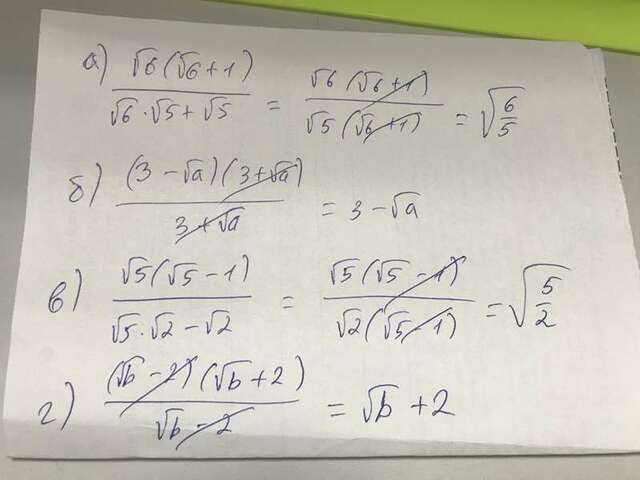 а) √6(√6+1) / √6·√5+√5 = √6(√6+1) / √5(√6+1) = √(6/5)
б) (3-√a)(3+√a) / 3+√a = 3-√a
в) √5(√5-1) / √5·√2-√2 = √5(√5-1) / √2(√5-1) = √(5/2)
г) (√b-2)(√b+2) / √b-2 = √b+2